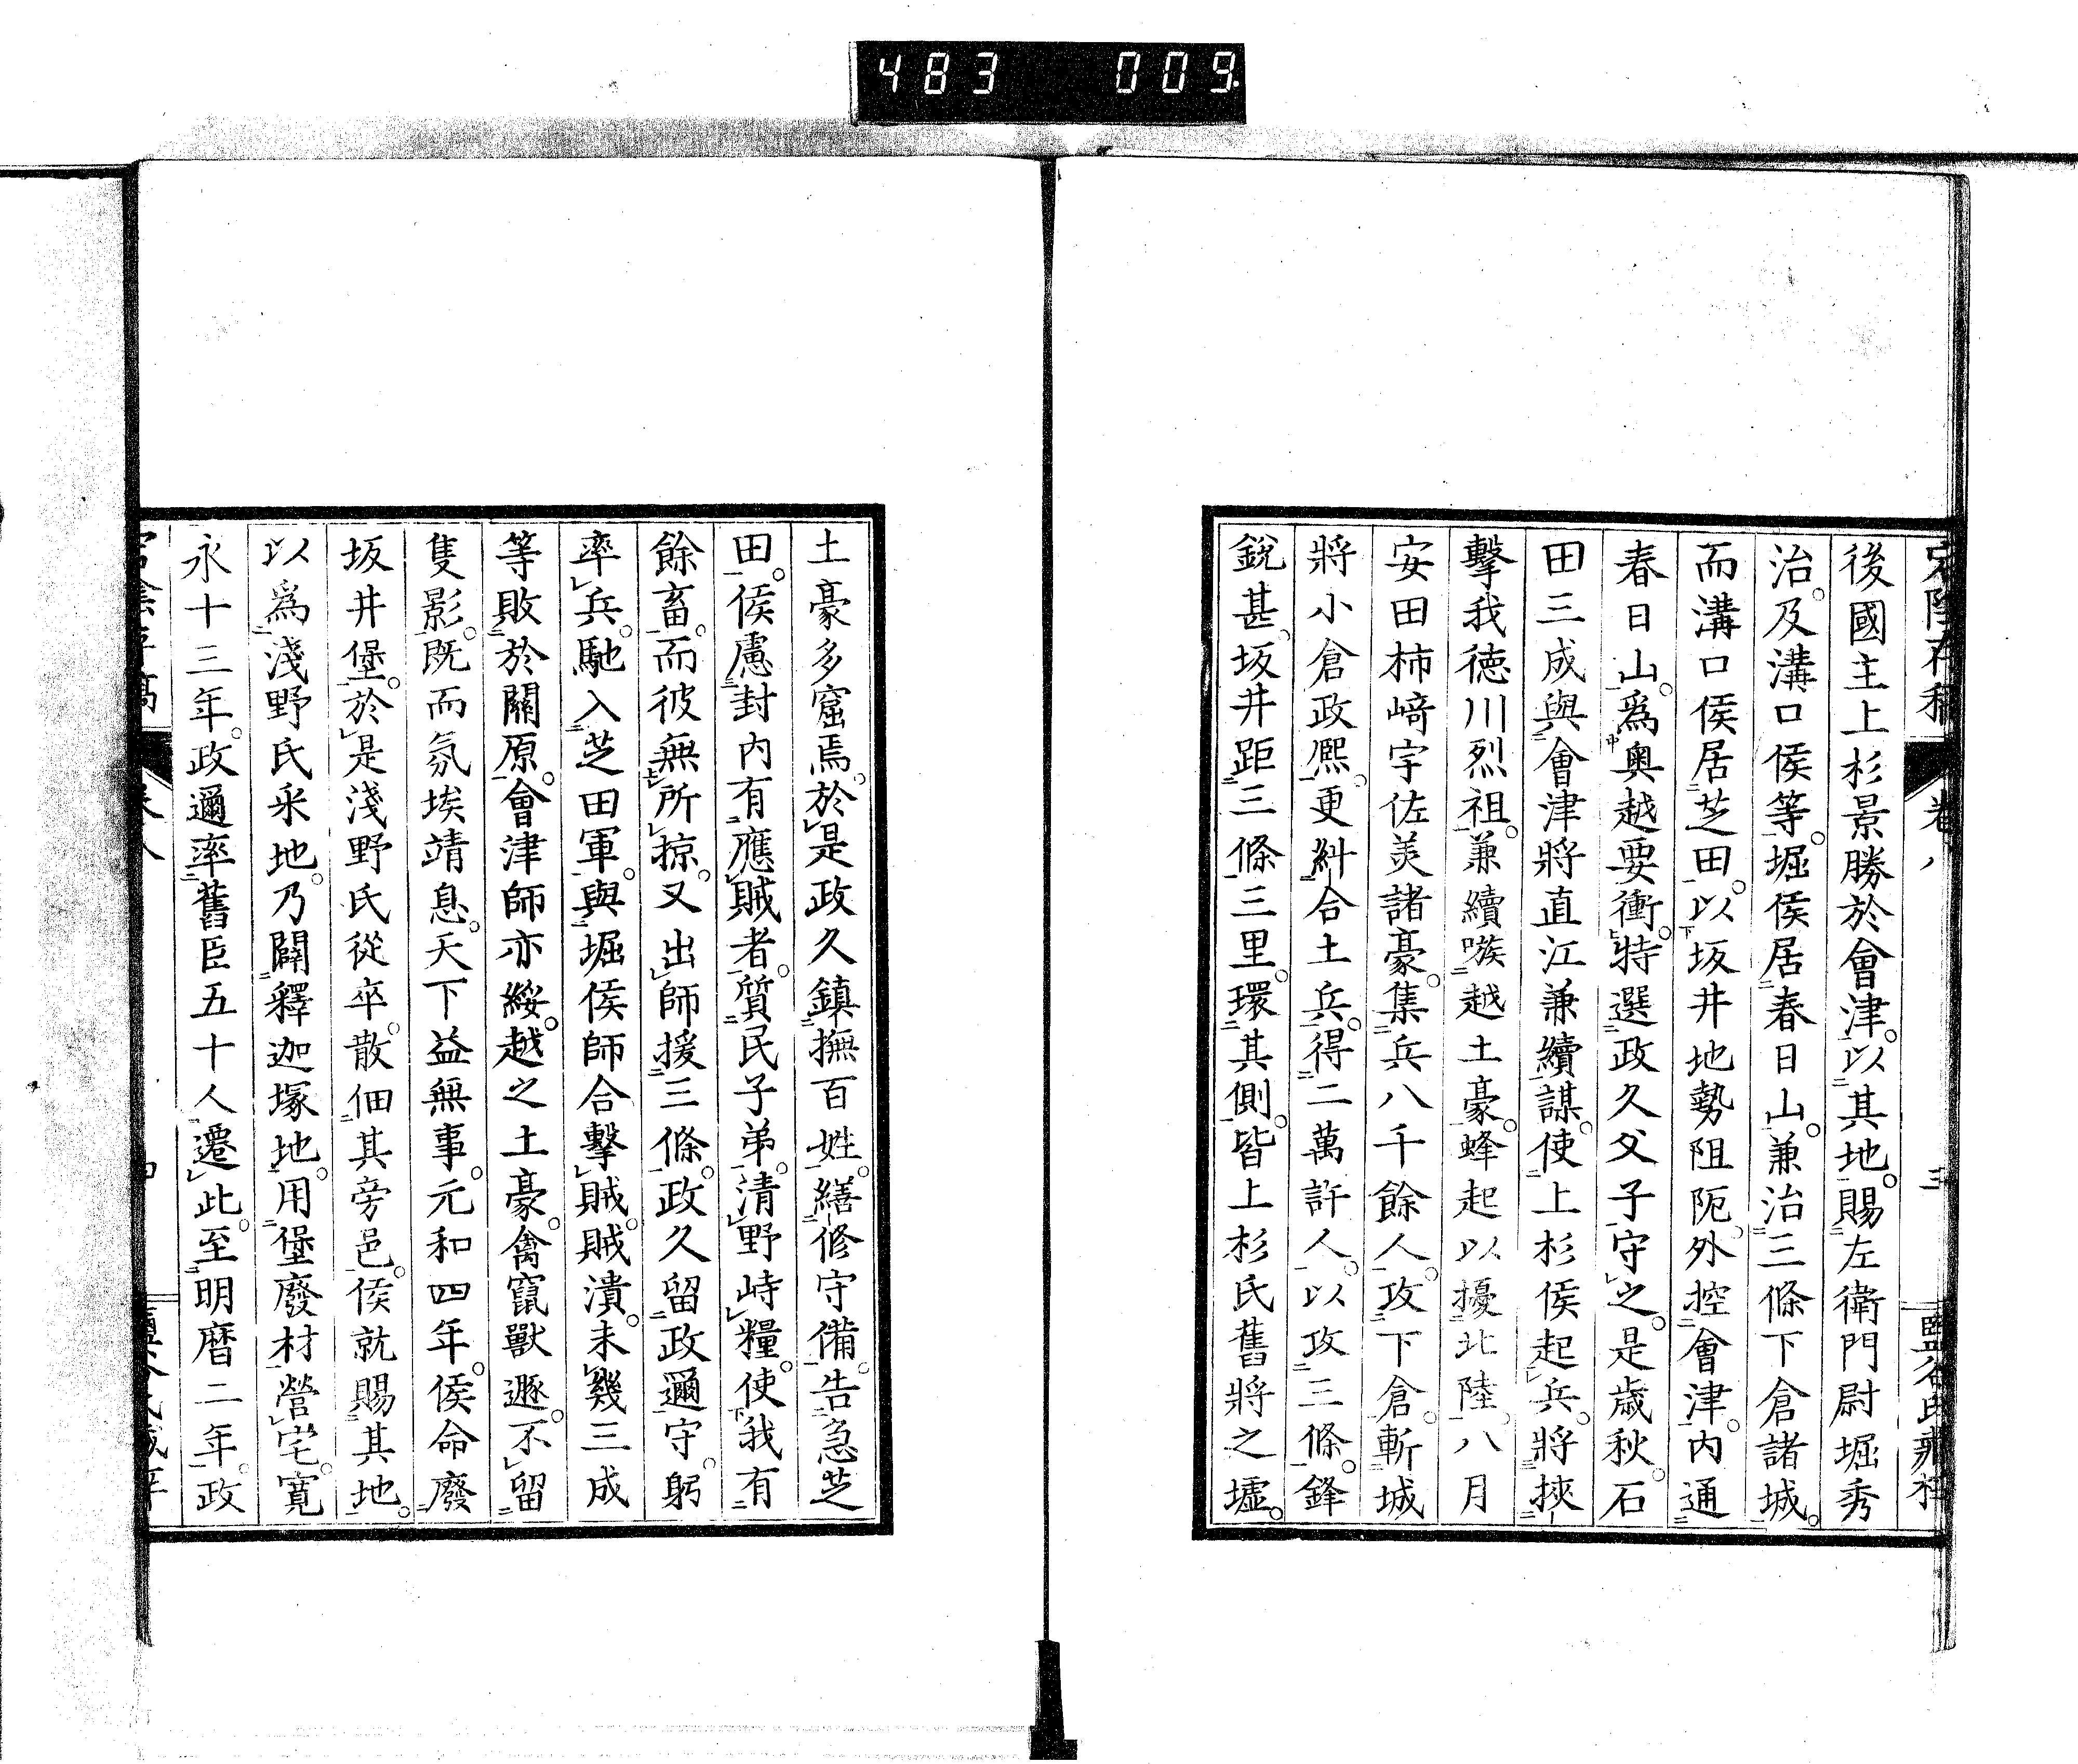 483 009
卷八
三
後國主上杉景勝於會津。以其地。賜左衛門尉堀秀
治。及溝口侯等。堀侯居春日山。兼治三條下倉諸城。
而溝口侯居芝田。以坂井地勢阻阨。外控會津。内通
春日山。爲奥越要衝。特選政久父子守之。是歳秋。石
田三成與會津將直江兼續謀。使上杉侯起兵。將挾
擊我徳川烈祖。兼續嗾越土豪。蜂起以擾北陸。八月
安田柿﨑宇佐美諸豪。集兵八千餘人。攻下倉。斬城
將小倉政熈。更糾合土兵。得二萬許人。以攻三條。鋒
銳甚。坂井距三條三里。環其側。皆上杉氏舊將之墟。
土豪多窟焉。於是政久鎮撫百姓。繕修守備。告急芝
田。侯慮封内有應賊者。質民子弟。清野峙糧。使我有
餘畜。而彼無所掠。又出師援三條。政久留政邇守。躬
率兵。馳入芝田軍。與堀侯師合擊賊。賊潰。未幾三成
等敗於關原。會津師亦綏。越之土豪。禽竄獸遯。不留
隻影。既而氛埃靖息。天下益無事。元和四年。侯命廢
坂井堡。於是淺野氏從卒。散佃其旁邑。侯就賜其地。
以爲淺野氏采地。乃闢釋迦塚地。用堡廢材。營宅。寛
永十三年。政邇率舊臣五十人。遷此。至明暦二年。政